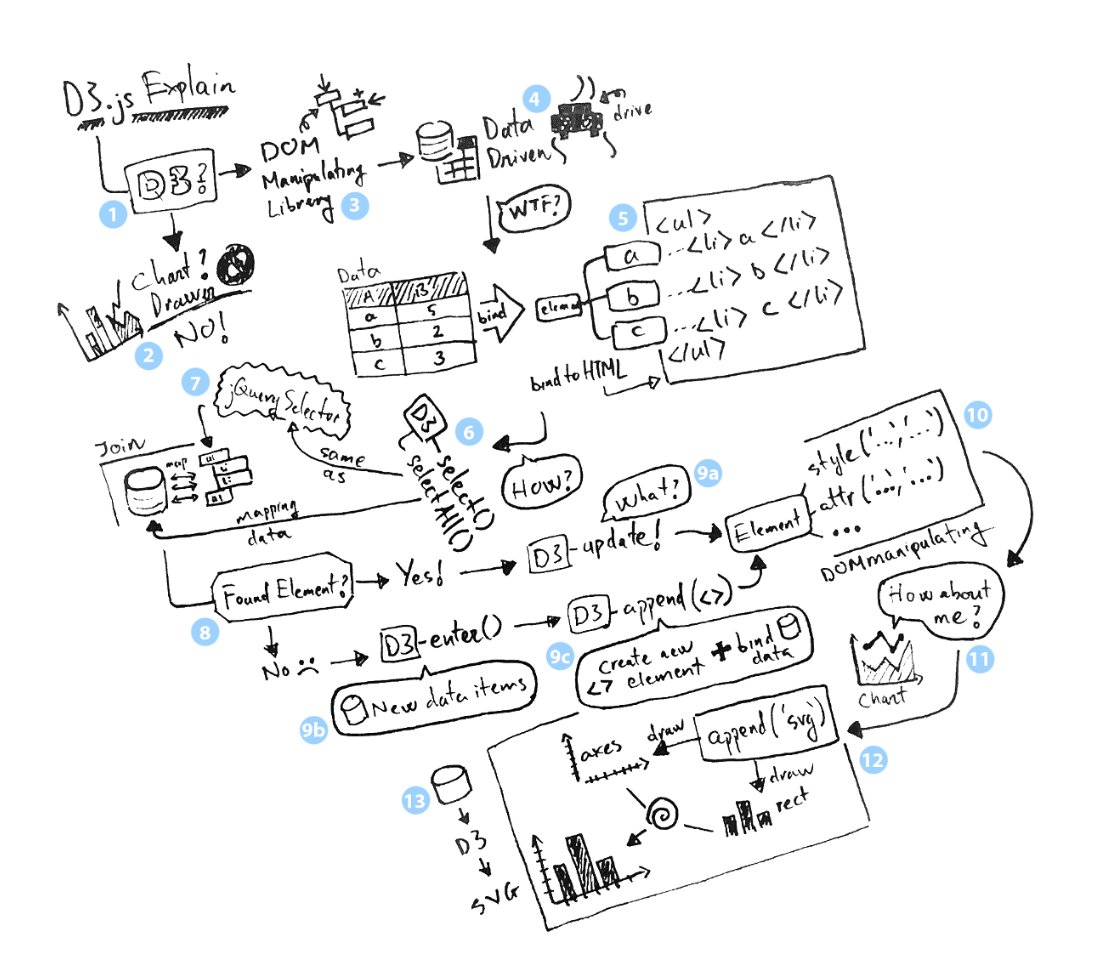 D3.js Explain
D3?
1
DOM
Manipulating
Library
3
4
Data
Driven
drive
WTF?
Chart?
Drawer
NO!
2
Data
A B
a 5
b 2
c 3
bind
element
5
a
b
c
<ul>
...<li> a </li>
...<li> b </li>
...<li> c </li>
</ul>
bind to HTML
How?
6
D3
select()
selectAll()
same
as
7
jQuery Selector
Join
map
mapping
data
8
Found Element?
Yes!
D3-update!
What?
9a
Element
10
style('...','...')
attr('...','...')
...
DOM manipulating
No
D3-enter()
9b
New data items
D3-append(<>)
9c
<> create new
element + bind
data
How about
me?
11
chart
append('svg')
12
draw
axes
draw
rect
13
D3
SVG